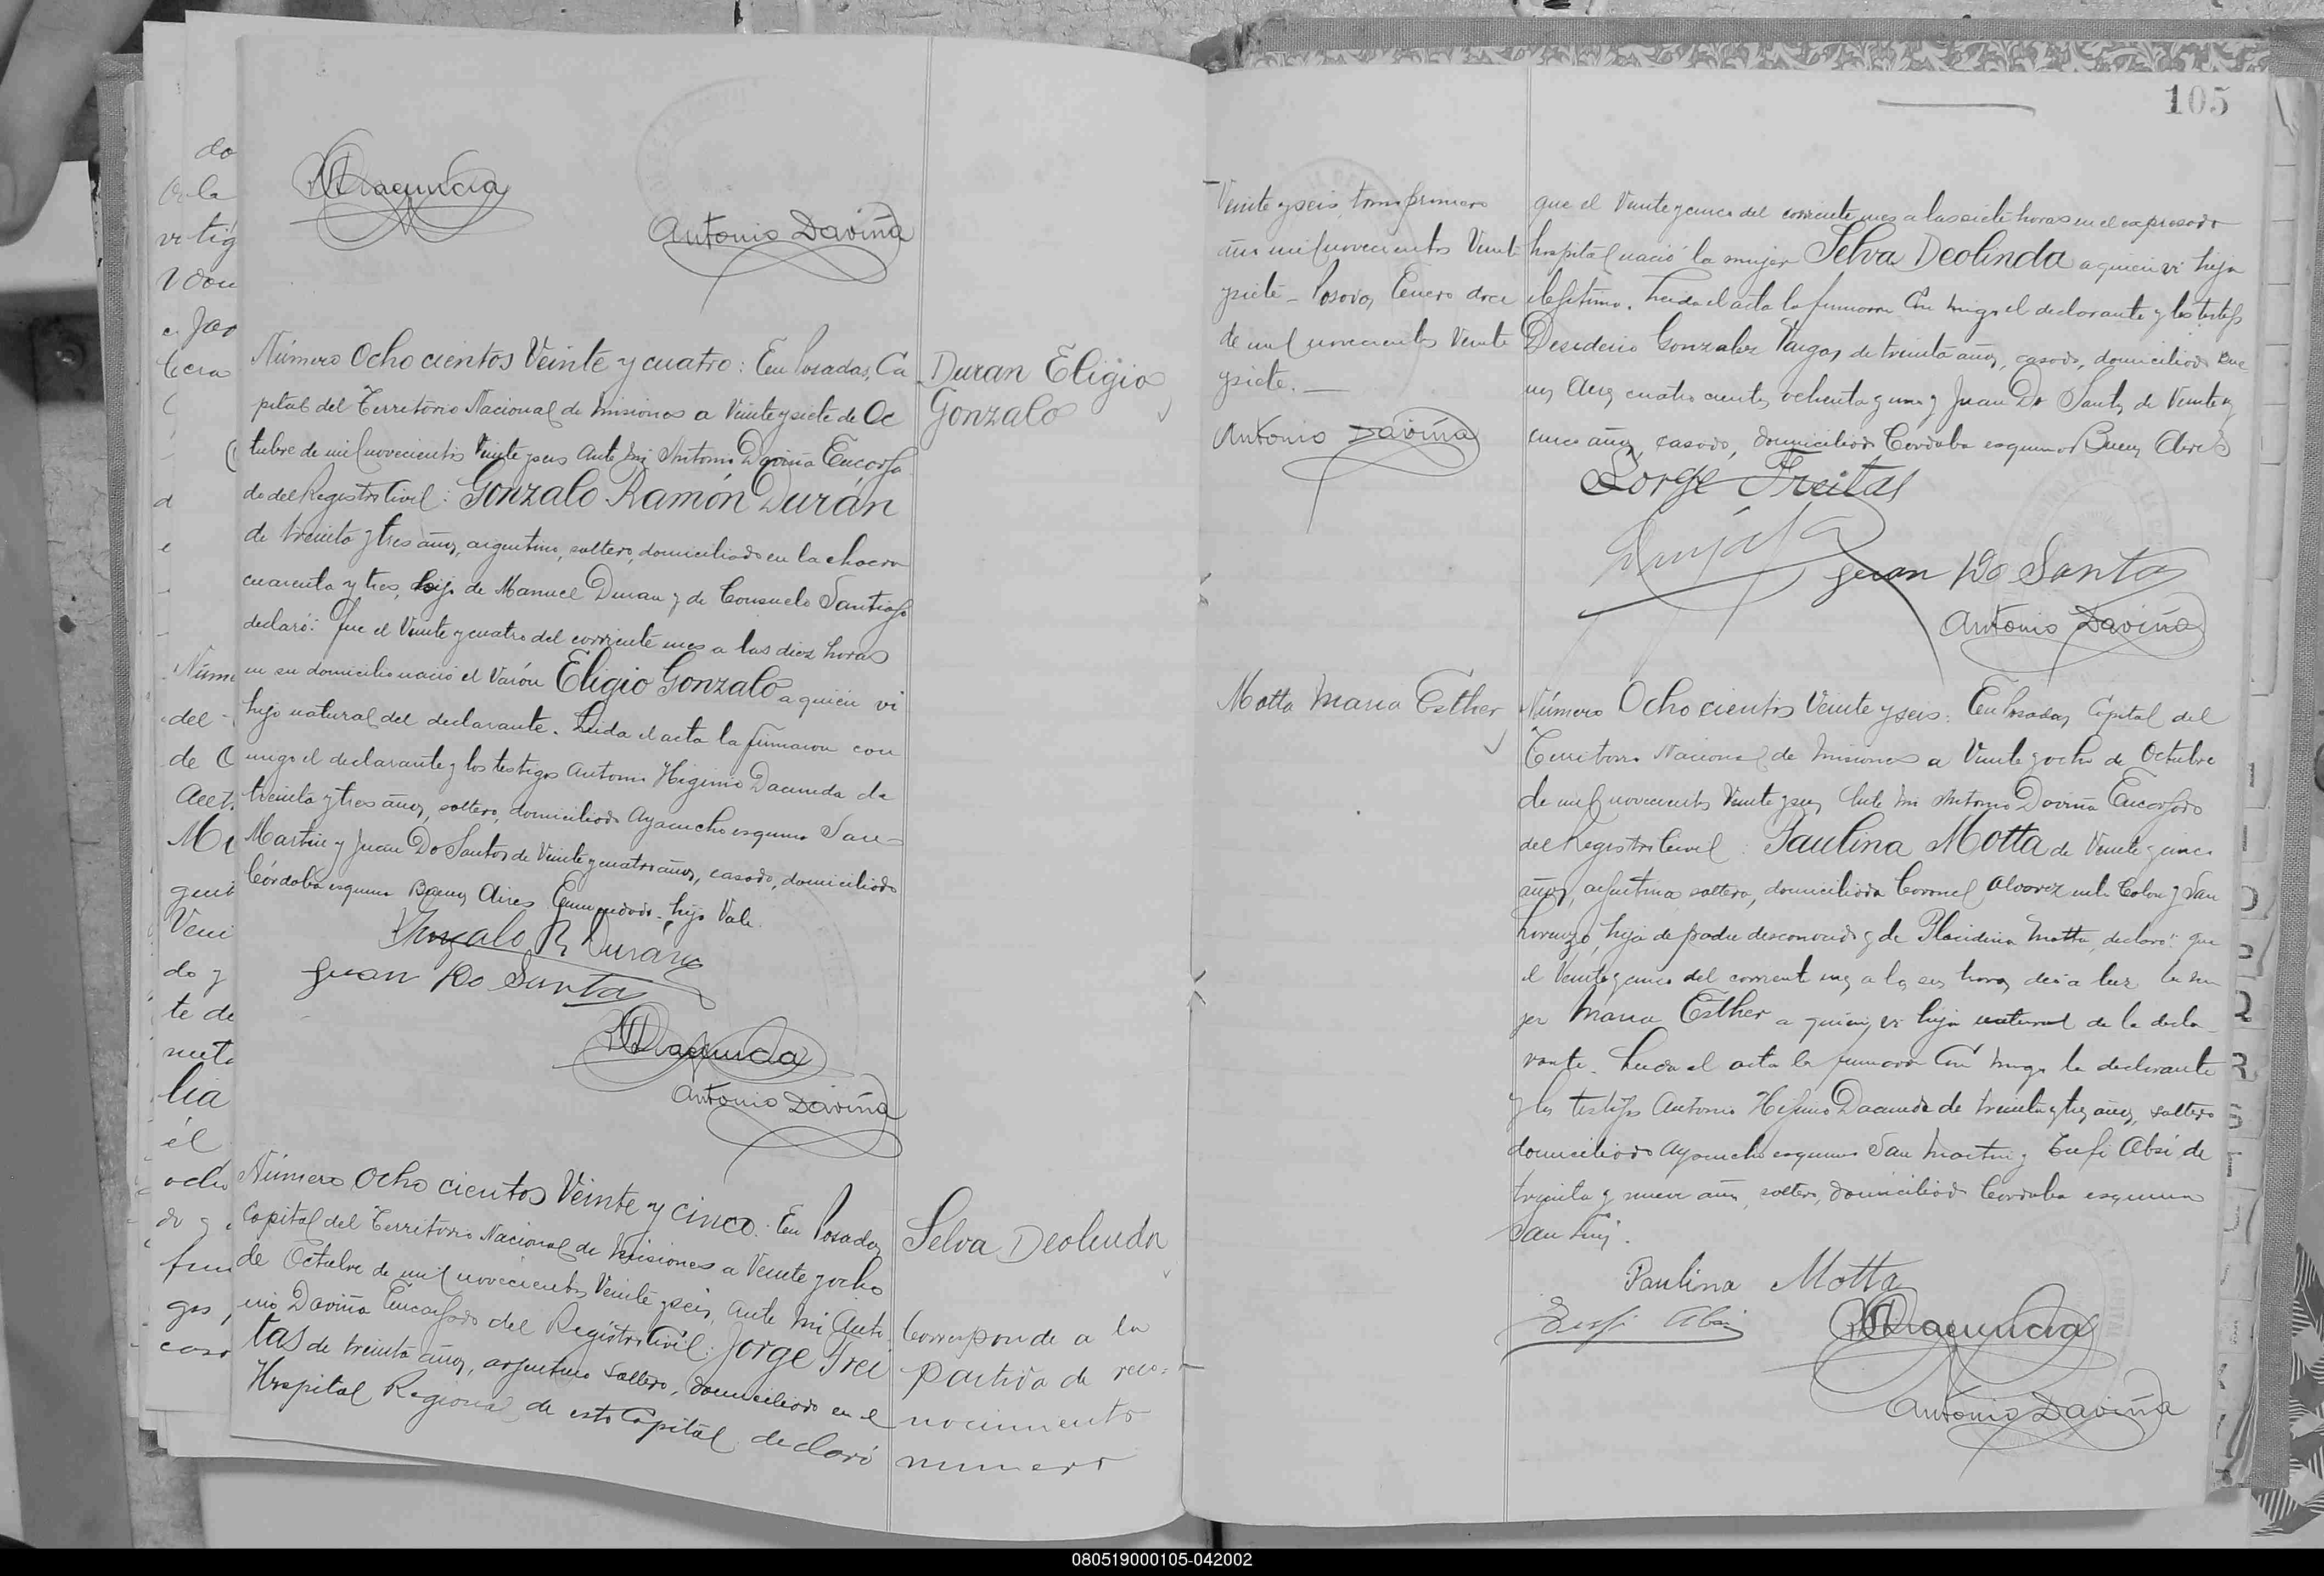 Antonio Daviña
Número Ocho cientos Veinte y cuatro: En Posadas, Ca
pital del Territorio Nacional de Misiones a Veinte y siete de Oc
tubre de mil novecientos Veinte y seis Ante Mi Antonio Daviña Encarga
do del Registro Civil: Gonzalo Ramón Durán
de treinta y tres años, argentino, soltero, domiciliado en la chacra
cuarenta y tres, hijo de Manuel Duran y de Consuelo Santiago
declaró: Que el Veinte y cuatro del corriente mes a las diez horas
en su domicilio nació el Varón Eligio Gonzalo a quien vi
hijo natural del declarante. Leida el acta la firmaron con
migo el declarante y los testigos Antonio Higinio Dacunda de
treinta y tres años, soltero, domiciliado Ayacucho esquina San
Martin y Juan Do Santos de Veinte y cuatro años, casado, domiciliado
Córdoba esquina Buenos Aires Enmendado-hijo Vale.
Gonzalo R Durán
Juan Do Santo
Antonio Daviña
Duran Eligio
Gonzalo
Número Ocho cientos Veinte y cinco: En Posadas,
Capital del Territorio Nacional de Misiones a Veinte y ocho
de Octubre de mil novecientos Veinte y seis, Ante Mi Anto
nio Daviña Encargado del Registro Civil: Jorge Frei
tas de treinta años, argentino soltero, domiciliado en el
Hospital Regional de esta Capital declaró
Selva Deolinda
Corresponde a la
partida de reco-
nocimiento
numero
105
Veinte y seis, tomo primero
año mil novecientos Veinte
y siete - Posadas, Enero doce
de mil novecientos Veinte
y siete.-
Antonio Daviña
que el Veinte y cinco del corriente mes a las siete horas en el expresado
hospital nació la mujer Selva Deolinda a quien vi hija
ilegitima. Leida el acta la firmaron Con migo el declarante y los testigos
Desiderio Gonzalez Vargas, de treinta años, casado, domiciliado Bue
nos Aires cuatro cientos ochenta y uno y Juan Do Santos de Veinte y
cinco años, casado, domiciliado Cordoba esquina Buenos Aires
Jorge Freitas
Juan Do Santo
Antonio Daviña
Motta Maria Esther
Número Ocho cientos Veinte y seis: En Posadas, Capital del
Territorio Nacional de Misiones a Veinte y ocho de Octubre
de mil novecientos Veinte y seis, Ante Mi Antonio Daviña Encargado
del Registro Civil: Paulina Motta de Veinte y cinco
años, argentina soltera, domiciliada Coronel Alvarez entre Colon y San
Lorenzo, hija de padre desconocido y de Placidina Motta, declaró: que
el Veinte y cinco del corriente mes, a las seis horas, dio a luz la mu
jer Maria Esther a quien vi hija natural de la decla-
rante. Leida el acta la firmaron Con migo la declarante
y los testigos Antonio Higinio Dacunda de treinta y tres años, soltero
domiciliado Ayacucho esquina San Martin y Tufi Absi de
treinta y nueve años, soltero, domiciliado Cordoba esquina
San Luis.
Paulina Motta
Tufi Absi
Antonio Daviña
080519000105-042002